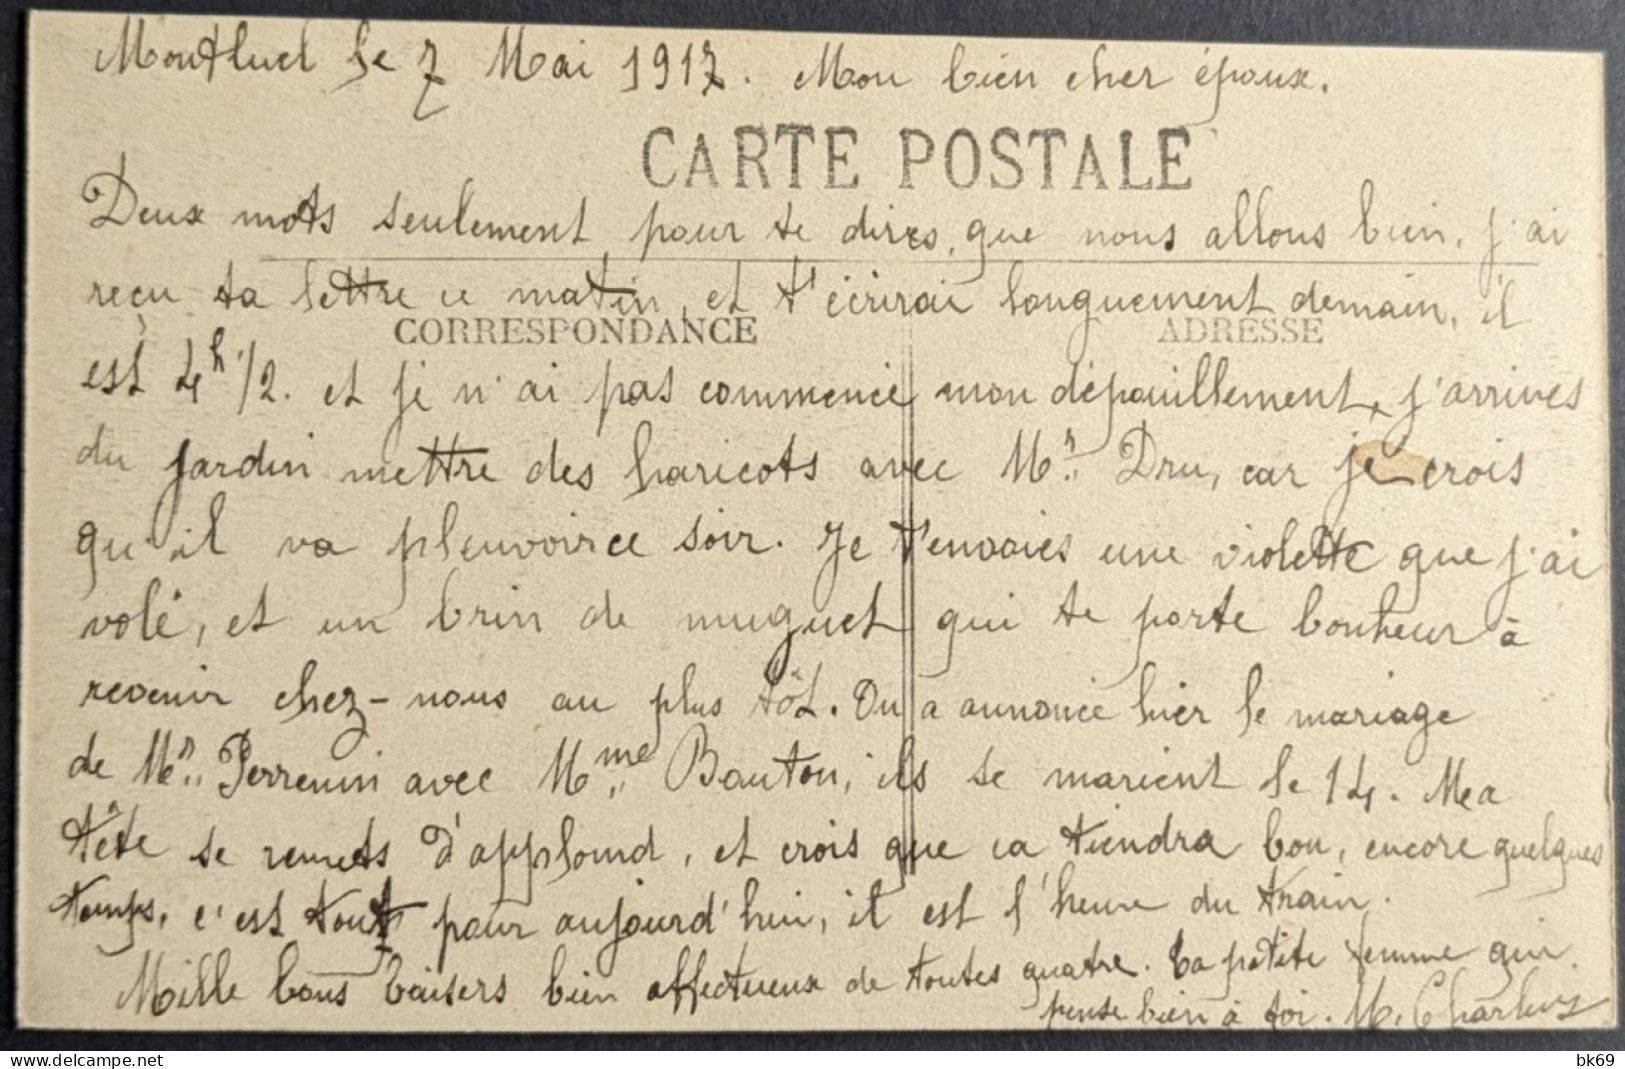 Montluel le 7 Mai 1917. Mon bien cher époux.
CARTE POSTALE
Deux mots seulement pour te dires, que nous allons bien, j'ai
reçu ta lettre ce matin, et t'écrirai longuement demain, il
CORRESPONDANCE ADRESSE
est 4h 1/2. et je n'ai pas commencé mon dépouillement, j'arrives
du jardin mettre des haricots avec Mr. Dru, car je crois
qu'il va pleuvoir ce soir. Je t'envoies une violette que j'ai
volé, et un brin de muguet qui te porte bonheur à
revenir chez-nous au plus tôt. On a annoncé hier le mariage
de Mr. Perrenin avec Mme. Bauton, ils se marient le 14. Ma
tête se remets d'applomd, et crois que ca tiendra bon, encore quelques
temps, c'est tout pour aujourd'hui, il est l'heure du train.
Mille bons baisers bien affectueux de toutes quatre. Ta petite femme qui
pense bien à toi. M. Charluy
bk69